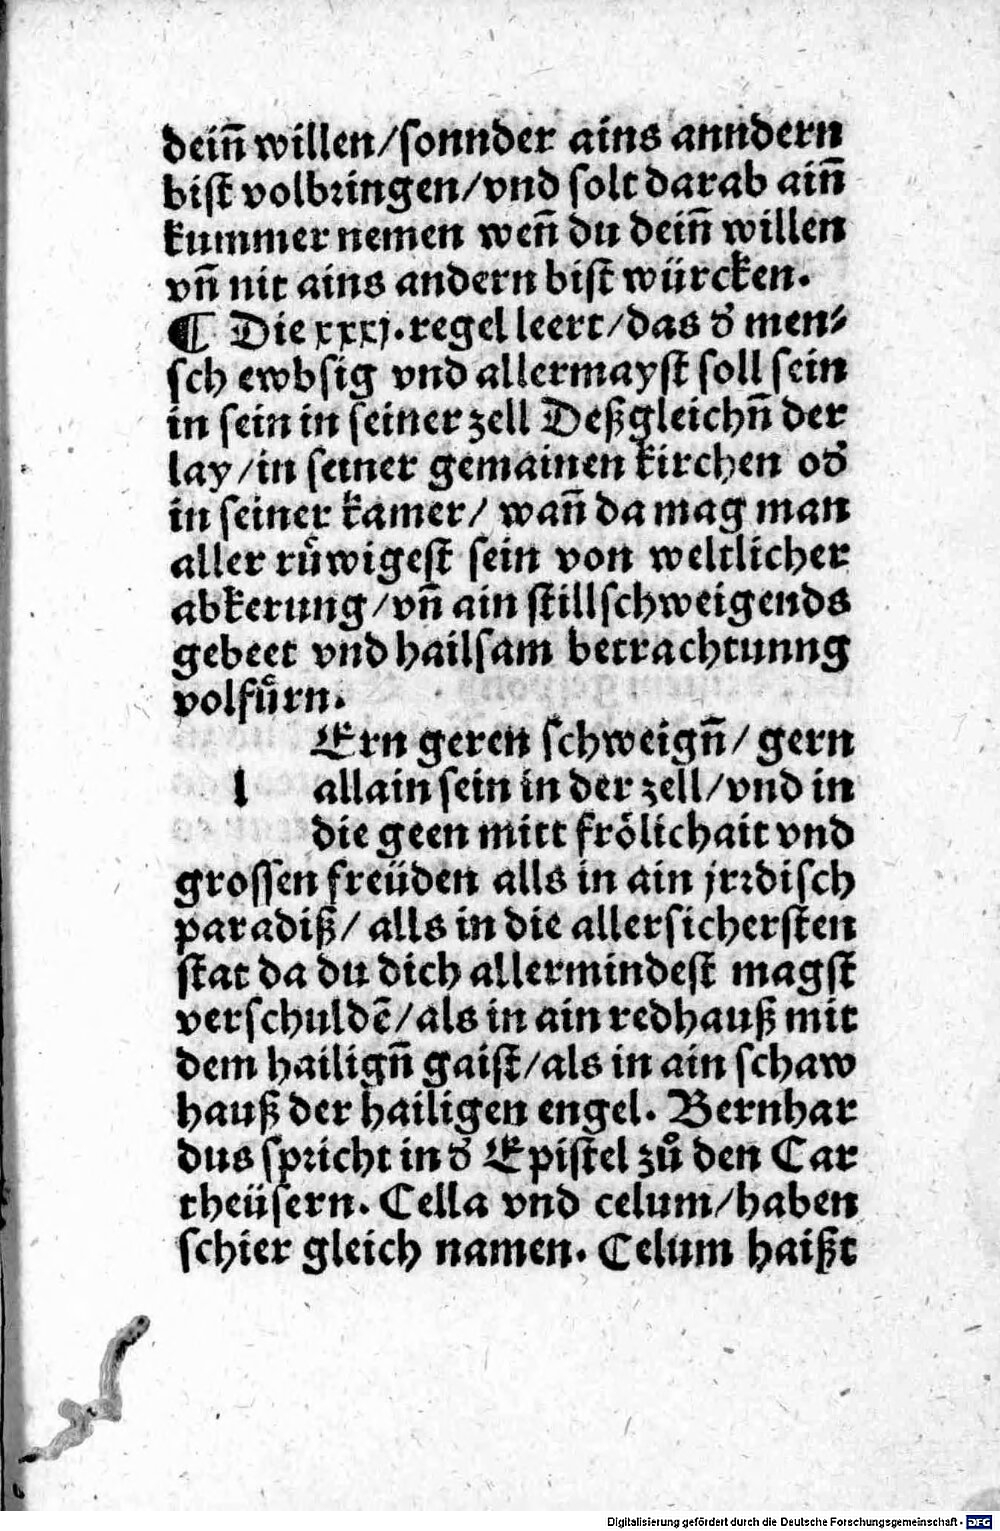 deiñ willen/sonnder ains anndern
bist volbringen/vnd solt darab aiñ
kummer nemen weñ du deiñ willen
vñ nit ains andern bist würcken.
¶ Die xxxj. regel leert/das d᷑ men⸗
sch ewbsig vnd allermayst soll sein
in sein in seiner zell Deßgleichñ der
lay/in seiner gemainen kirchen od᷑
in seiner kamer/ wañ da mag man
aller rüwigest sein von weltlicher
abkerung/vñ ain stillschweigends
gebeet vnd hailsam betrachtunng
volfuͤrn.
Ern geren schweigñ/ gern
l allain sein in der zell/vnd in
die geen mitt frölichait vnd
grossen freüden alls in ain jrrdisch
paradiß/ alls in die allersichersten
stat da du dich allermindest magst
verschuldē/als in ain redhauß mit
dem hailigñ gaist/als in ain schaw
hauß der hailigen engel. Bernhar
dus spricht in d᷑ Epistel zuͦ den Car
theüsern. Cella vnd celum/haben
schier gleich namen. Celum haißt
Digitalisierung gefördert durch die Deutsche Forschungsgemeinschaft - DFG